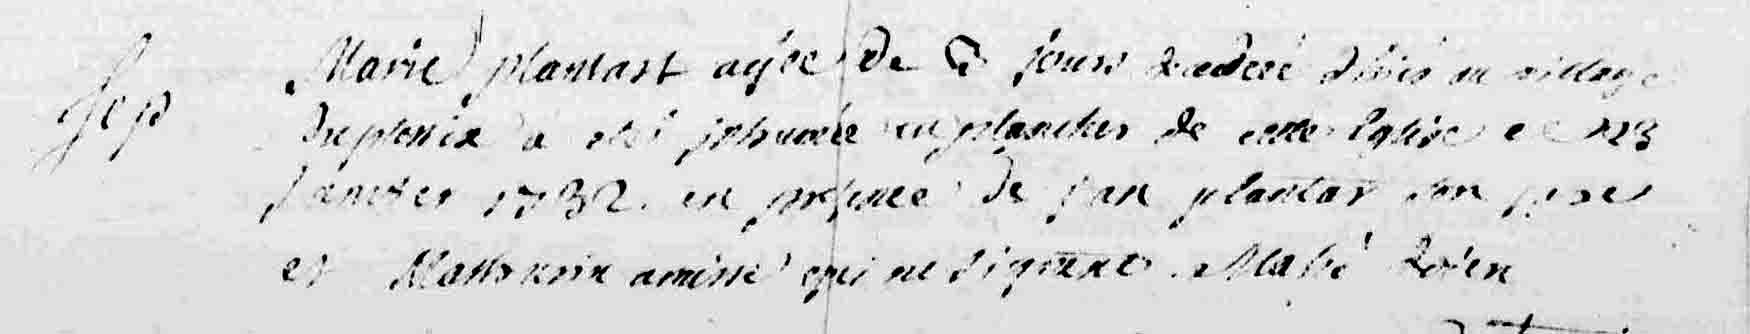 Sep
Marie plantart agée de 5 jours decedeé d'hier au village
a eté inhumée au plancher de cette Eglise ce 23
janvier 1732. en presence de jan plantar son pere
et Mathurin amisse qui ne signent. Mahé